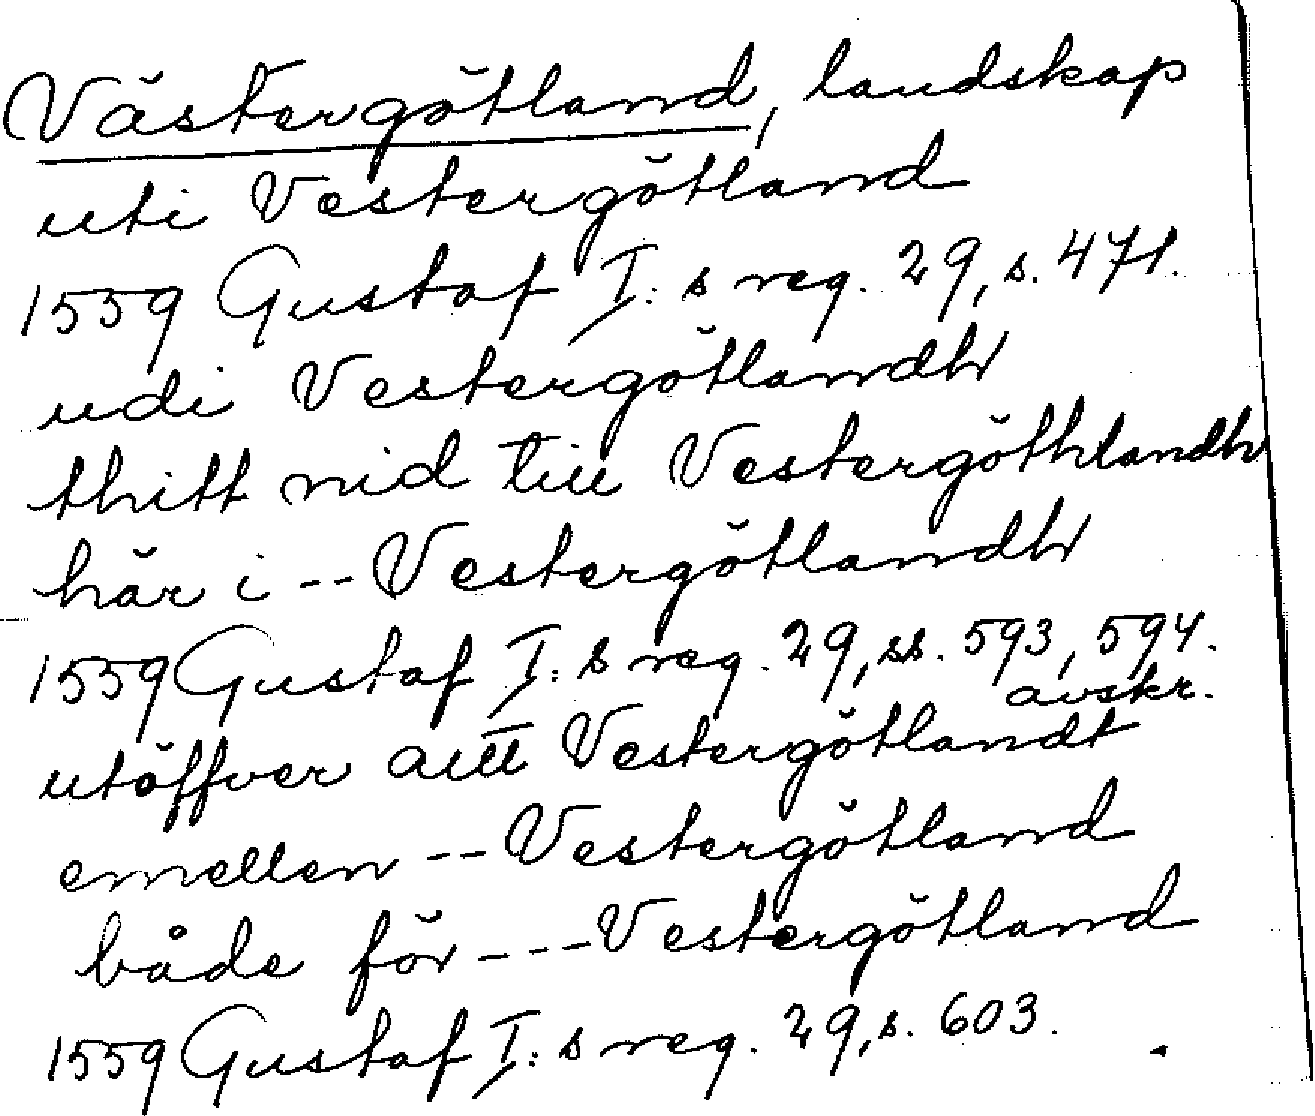 Västergötland, landskap
uti Vestergötland
1559 Gustaf I:s reg. 29, s. 471.
udi Vestergötlandh
thitt nid till Vestergöthlandh
här i -- Vestergötlandh
1559 Gustaf I:s reg. 29, ss. 593, 594.
avskr.
utöffver alltt Vestergötlandt
emellen -- Vestergötland
både för --- Vestergötland
1559 Gustaf I:s reg. 29, s. 603.